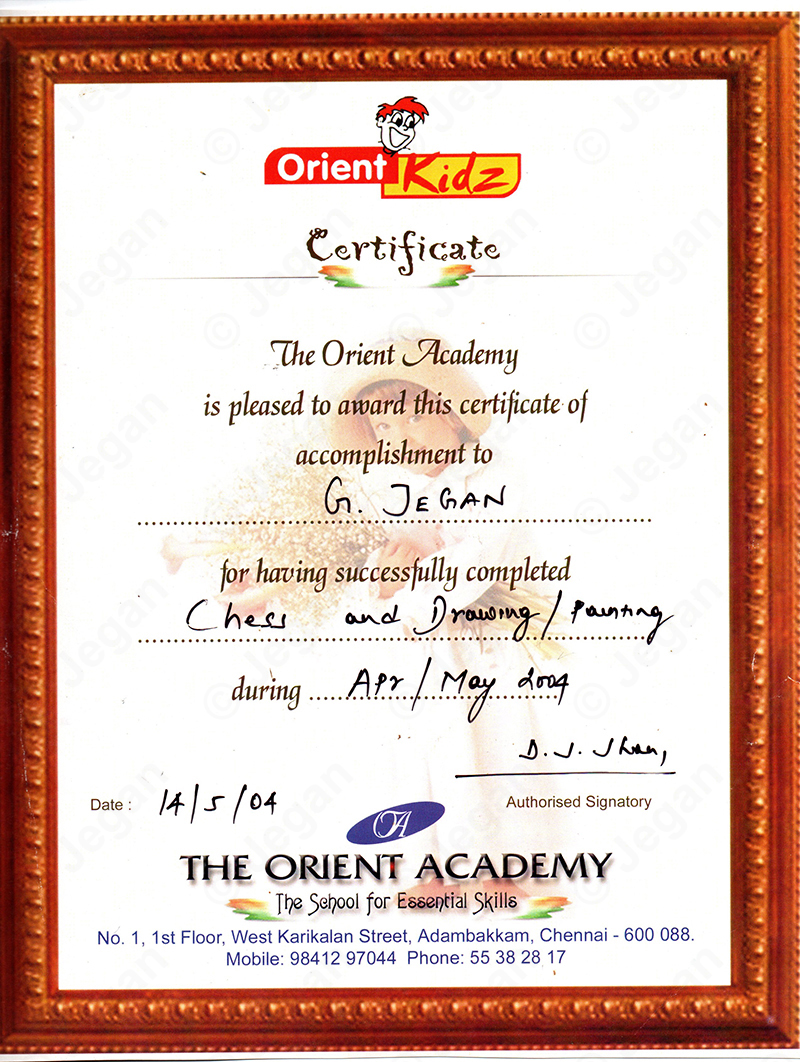 Orient Kidz
Certificate
The Orient Academy
is pleased to award this certificate of
accomplishment to
G. JEGAN
for having successfully completed
Chess and Drawing / Painting
during Apr / May 2004
D. J.
Date : 14/5/04
Authorised Signatory
OA
THE ORIENT ACADEMY
The School for Essential Skills
No. 1, 1st Floor, West Karikalan Street, Adambakkam, Chennai - 600 088.
Mobile: 98412 97044 Phone: 55 38 28 17
© Jegan